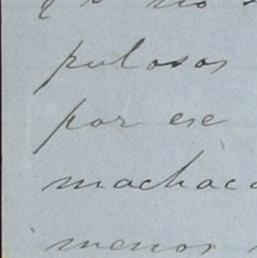 y no
pulosos
por ese
machac
menos